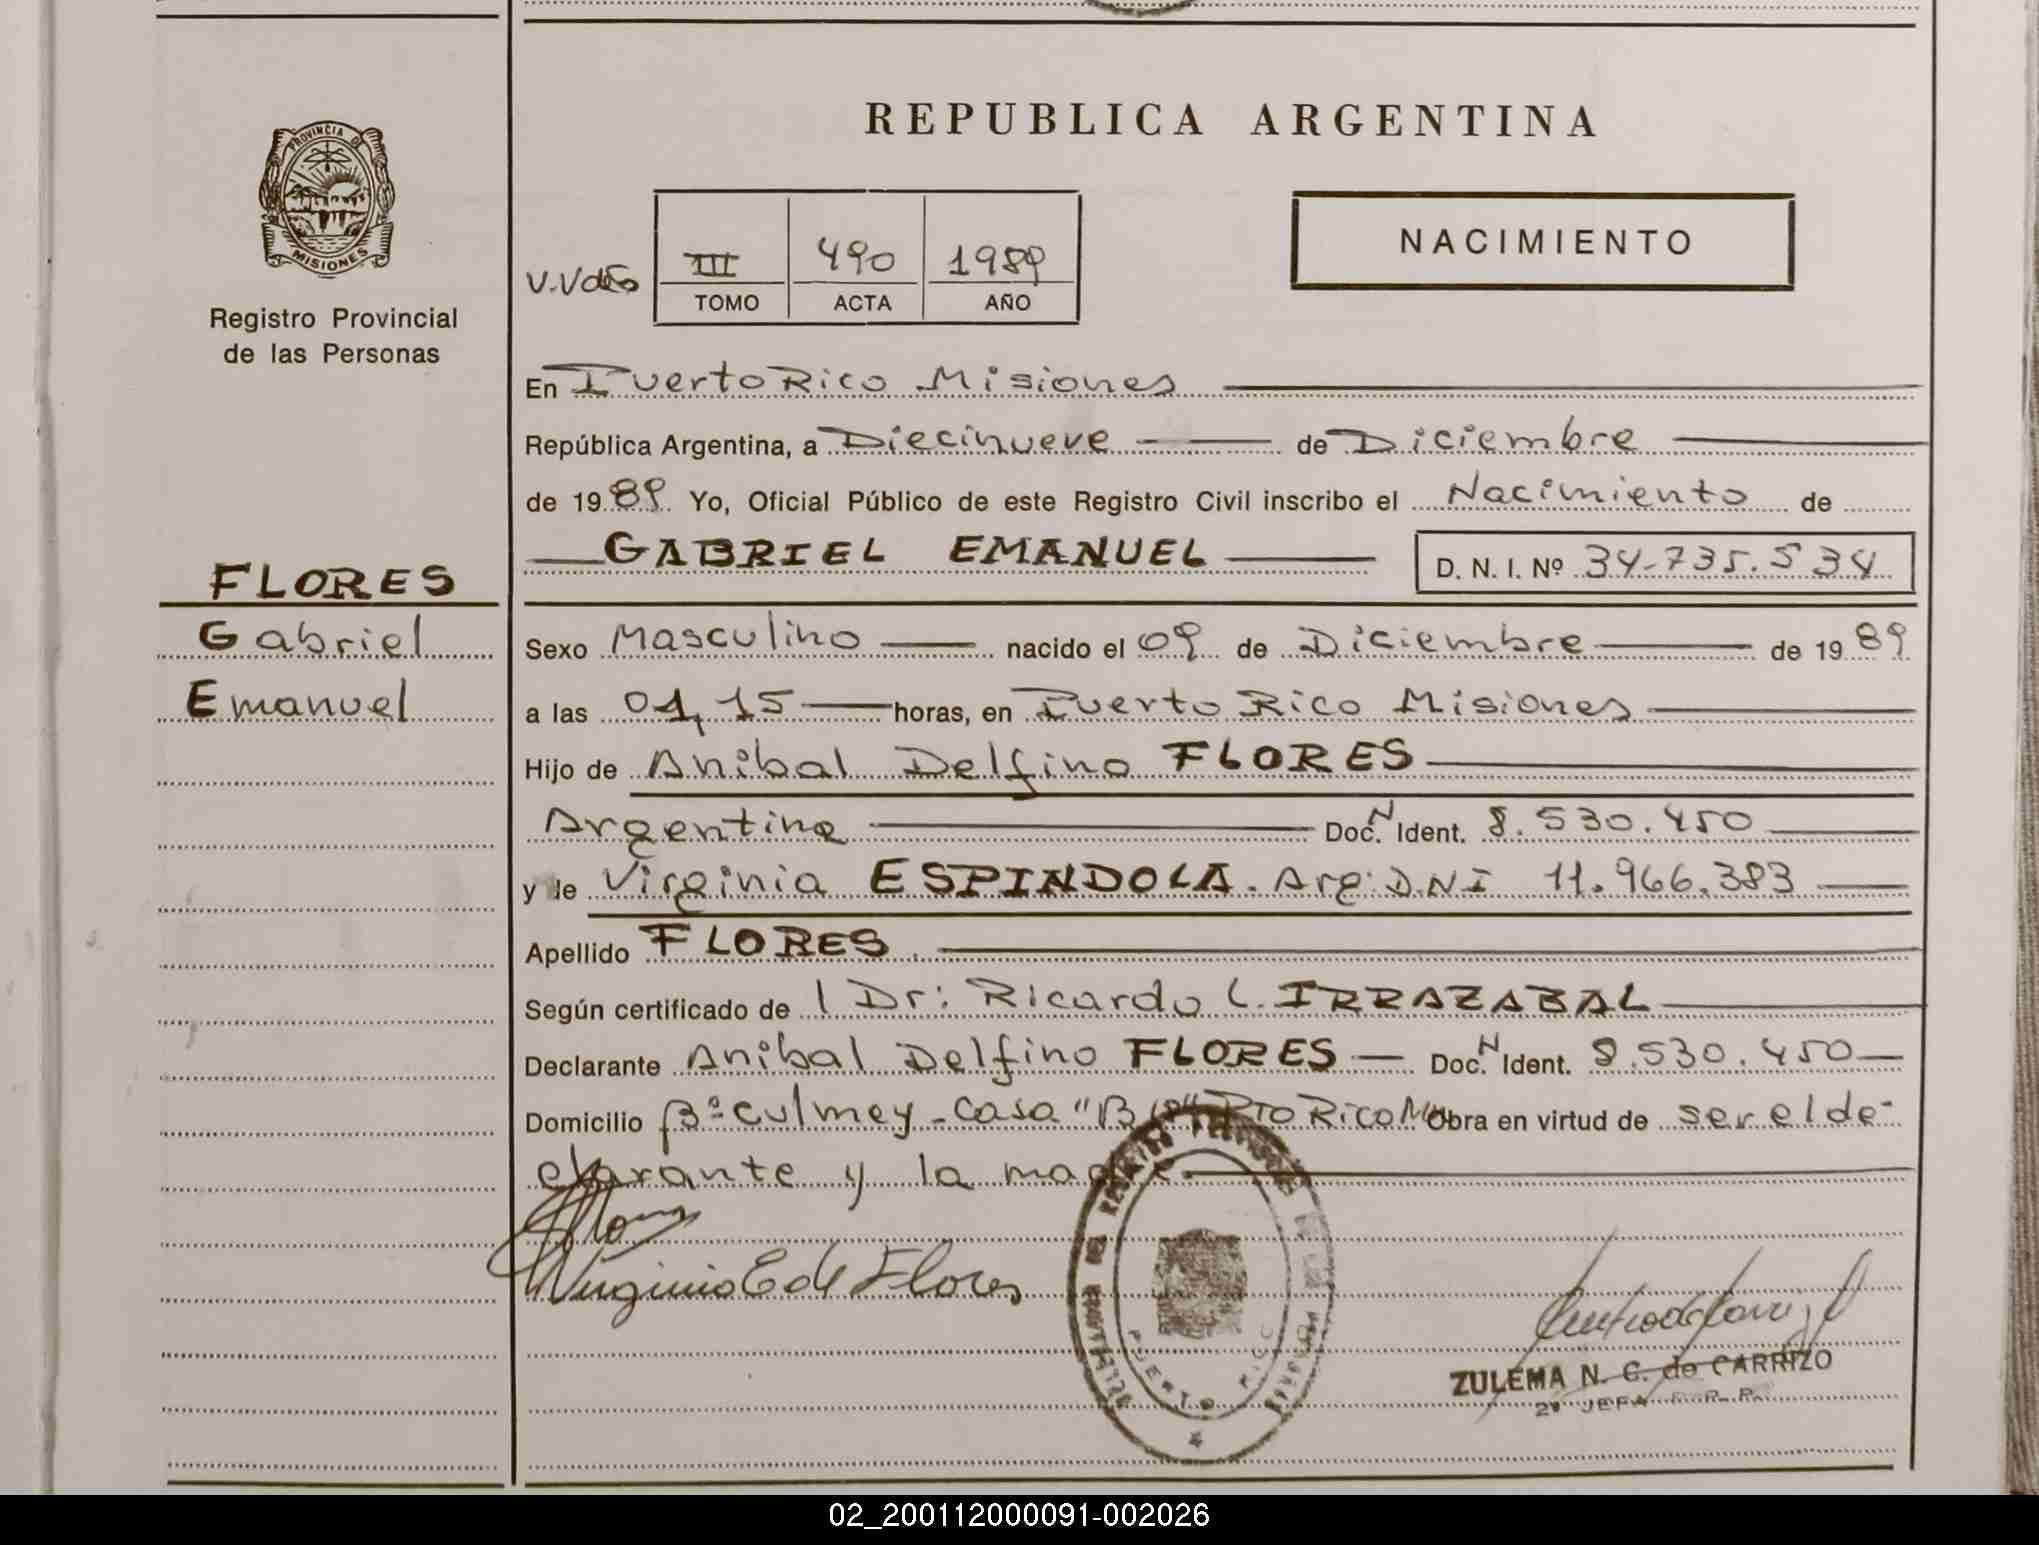 PROVINCIA DE
MISIONES
Registro Provincial
de las Personas
FLORES
Gabriel
Emanuel
REPUBLICA ARGENTINA
NACIMIENTO
III 490 1989
TOMO ACTA AÑO
En Puerto Rico Misiones
República Argentina, a Diecinueve de Diciembre
de 1989 Yo, Oficial Público de este Registro Civil inscribo el Nacimiento de
GABRIEL EMANUEL D. N. I. Nº 34.735.534
Sexo Masculino nacido el 09 de Diciembre de 1989
a las 01,15 horas, en Puerto Rico Misiones
Hijo de Anibal Delfino FLORES
Argentino Doc. N Ident. 8.530.450
y de Virginia ESPINDOLA. Arg. D.N.I 11.966.383
Apellido FLORES.
Según certificado de l Dr: Ricardo L. IRRAZABAL
Declarante Anibal Delfino FLORES Doc. N Ident. 8.530.450
Domicilio Bº Culmey - Casa "B Pto Rico Obra en virtud de ser el de-
clarante y la madre.
Virginia E de Flores
PUERTO RICO
ZULEMA N. C. de CARRIZO
2ª JEFA R. R. P.
02_200112000091-002026